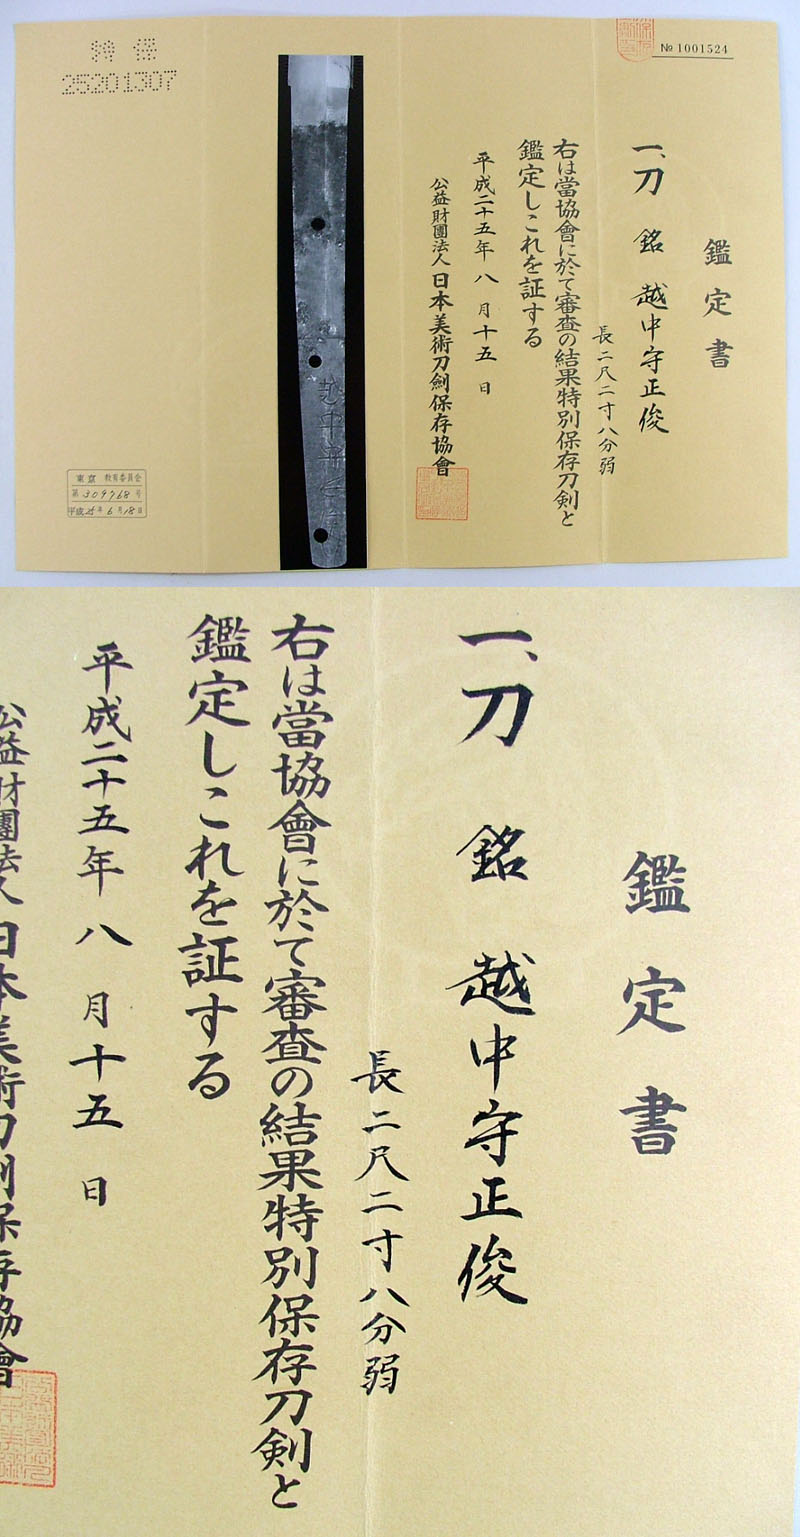 № 1001524
鑑定書
一、刀 銘 越中守正俊
長二尺二寸八分弱
右は當協會に於て審査の結果特別保存刀剣と
鑑定しこれを証する
平成二十五年 八 月 十五 日
公益財團法人 日本美術刀劍保存協會
越中守正俊
特 保
25201307
東京 教育委員会
第 309768 号
平成 25 年 6 月 18 日
鑑定書
一、刀 銘 越中守正俊
長二尺二寸八分弱
右は當協會に於て審査の結果特別保存刀剣と
鑑定しこれを証する
平成二十五年 八 月 十五 日
公益財團法人 日本美術刀劍保存協會